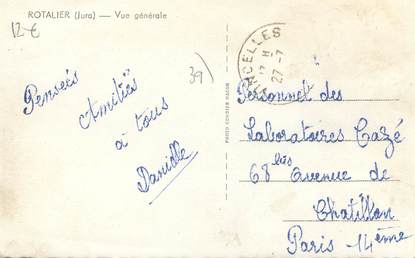 ROTALIER (Jura) — Vue générale
12 €
39)
Pensées
Amitiés
à tous
Danielle
27-7
Personnel des
Laboratoires Cazé
68 bis avenue de
Chatillon
Paris - 14ème